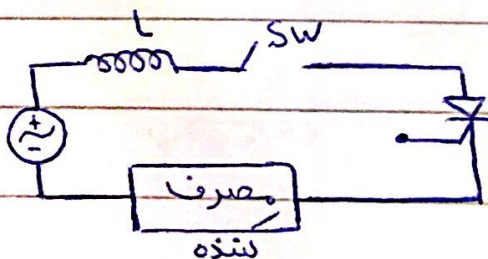 L
SW
+
-
مصرف
کننده